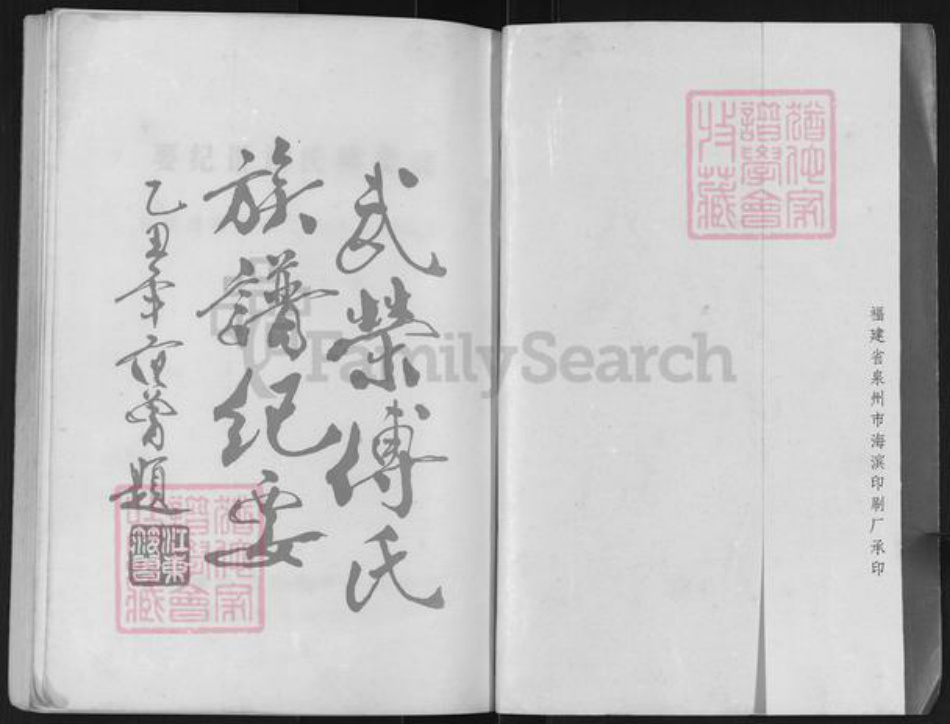 武榮傅氏
族譜纪要
乙丑年 范曾題
江東范曾
猶他家
譜學會
收藏
福建省泉州市海滨印刷厂承印
猶他家
譜學會
收藏
FamilySearch